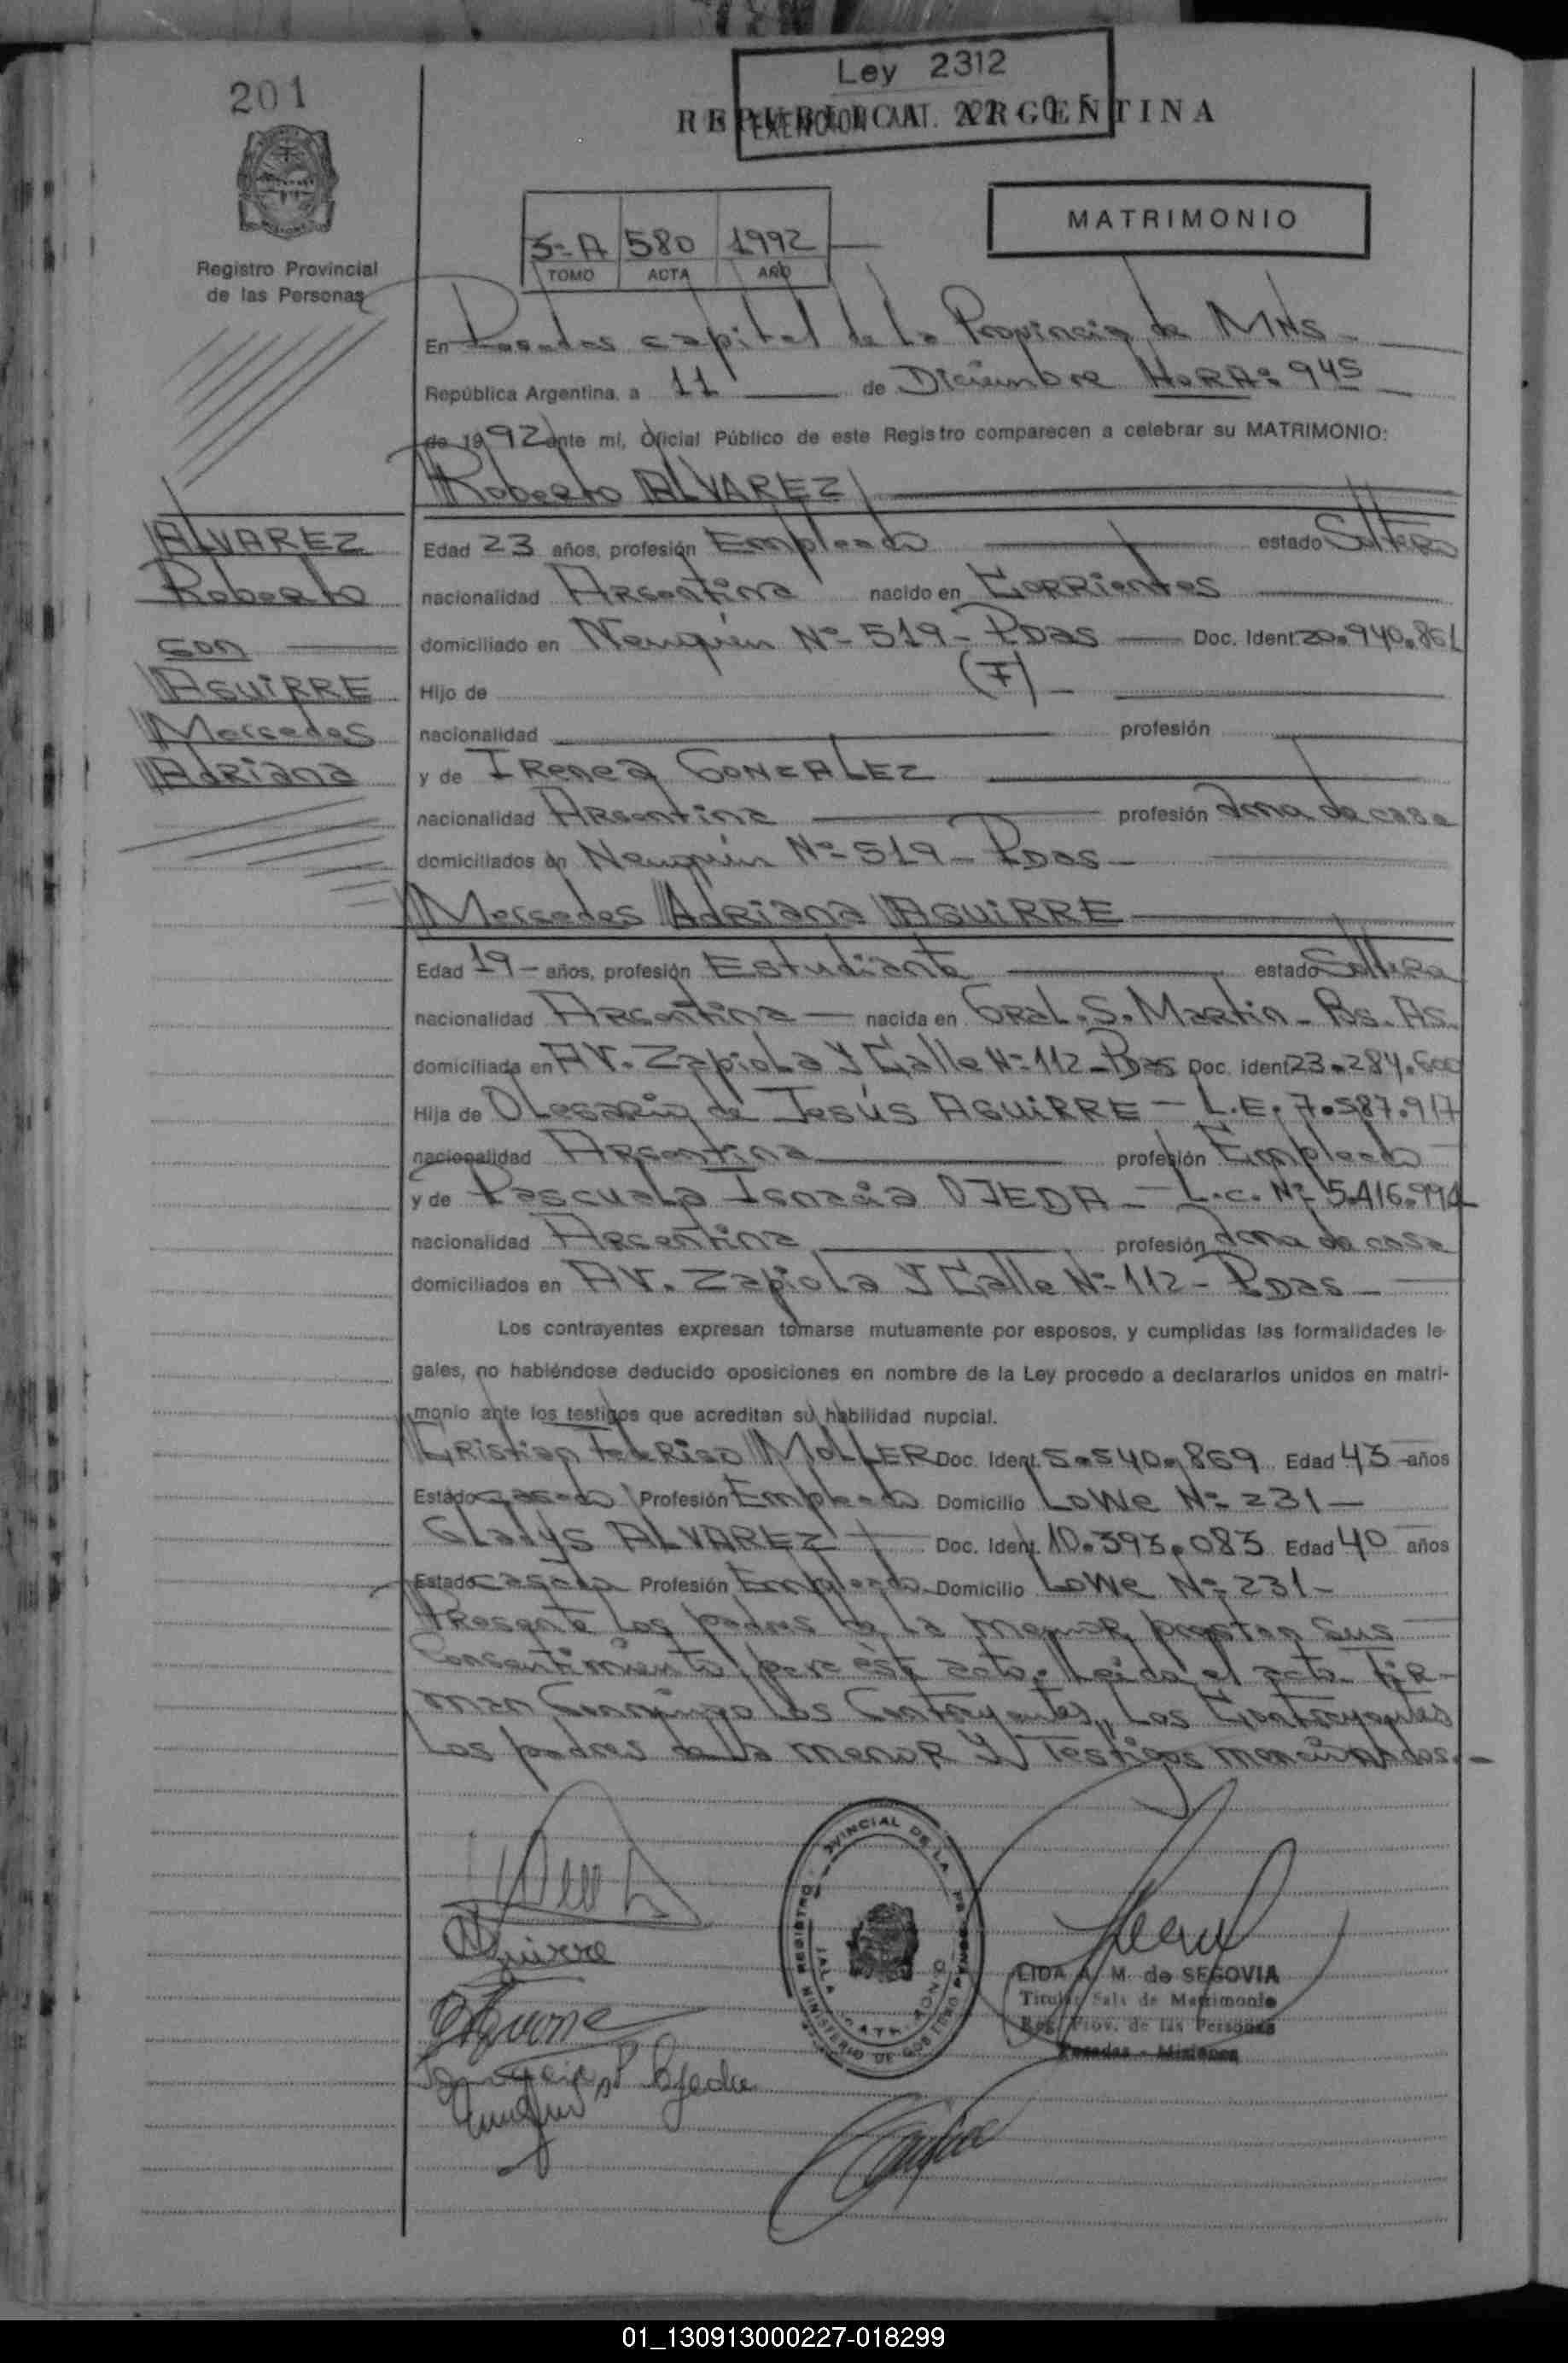 201
Ley 2312
REPUBLICA ARGENTINA
EXENCION ART.
MATRIMONIO
3-A 580 1992
TOMO ACTA AÑO
Registro Provincial
de las Personas
En Posadas capital de la Provincia de MNS-
República Argentina, a 11 de Diciembre HORA: 945
de 1992 ante mi, Oficial Público de este Registro comparecen a celebrar su MATRIMONIO:
Roberto ALVAREZ
ALVAREZ
Roberto
con
AGUIRRE
Mercedes
Adriana
Edad 23 años, profesión Empleado estado Soltero
nacionalidad Argentina nacido en Corrientes
domiciliado en Neuquén Nº- 519- PDas Doc. Ident. 20.940.861
Hijo de
nacionalidad profesión
y de Irenea GONZALEZ
nacionalidad Argentina profesión Ama de casa
domiciliados en Neuquén Nº- 519- PDas-
Mercedes Adriana AGUIRRE
Edad 19- años, profesión Estudiante estado Soltera
nacionalidad Argentina nacida en Gral. S. Martin- Bs. As.
domiciliada en AV. Zapiola y Calle Nº 112- PDas Doc. Ident. 23.284.600
Hija de Olegario de Jesús AGUIRRE - L.E. 7.587.917
nacionalidad Argentina profesión Empleado
y de Pascuala Ignacia OJEDA - L.C. Nº 5.416.994
nacionalidad Argentina profesión Ama de casa
domiciliados en AV. Zapiola y Calle Nº 112- PDas-
Los contrayentes expresan tomarse mutuamente por esposos, y cumplidas las formalidades le-
gales, no habiéndose deducido oposiciones en nombre de la Ley procedo a declararlos unidos en matri-
monio ante los testigos que acreditan su habilidad nupcial.
Cristian Federico MOLLER Doc. Ident. 5.540.869 Edad 43 años
Estado casado Profesión Empleado Domicilio Lowe Nº- 231-
Gladys ALVAREZ Doc. Ident. 10.393.083 Edad 40 años
Estado casada Profesión Empleada Domicilio Lowe Nº- 231-
Presente los padres de la menor prestan sus
Consentimiento para este acto. Leida el acta fir-
man Conmigo los Contrayentes, Los Contrayentes
los padres de la menor y Testigos mencionados.-
REGISTRO PROVINCIAL DE LAS PERSONAS
MINISTERIO DE GOBIERNO
Aguirre
Ojeda
LIDA A. M. de SEGOVIA
Titular Sala de Matrimonio
Reg. Prov. de las Personas
Posadas - Misiones
01_130913000227-018299